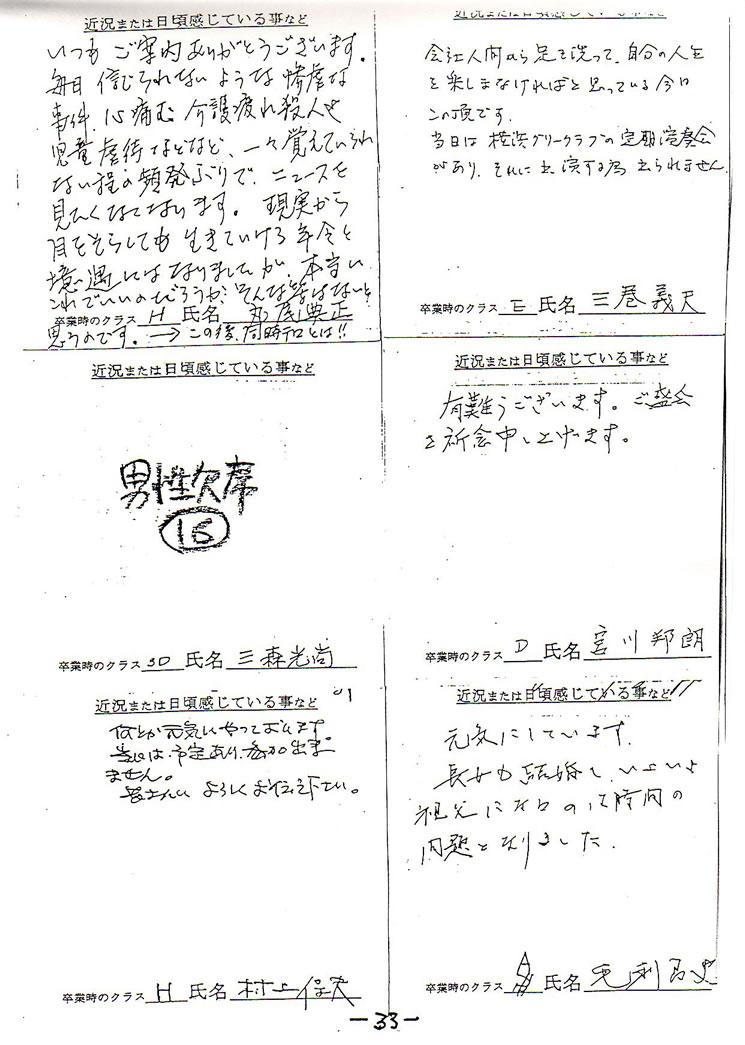 近況または日頃感じている事など
いつも ご案内ありがとうございます。
毎日 信じられないような惨虐な
事件、心痛む 介護疲れ殺人や
児童虐待などなど、一々覚えていられ
ない程の頻発ぶりで、ニュースを
見たくなくなります。 現実から
目をそらしても 生きていける年令と
境遇にはなりましたが、本当に
これでいいのだろうか?そんな筈はないと
卒業時のクラス H 氏名 丸尾典正
思うのです。→この後、同時テロとは!!
近況または日頃感じている事など
会社人間から足を洗って、自分の人生
を楽しまなければと思っている今日
この頃です。
当日は 横浜グリークラブの定期演奏会
があり、それに出演する為 出られません。
卒業時のクラス E 氏名 三巻義夫
近況または日頃感じている事など
男性欠席
16
卒業時のクラス 3D 氏名 三森光尚
近況または日頃感じている事など
有難うございます。ご盛会
を祈念申し上げます。
卒業時のクラス D 氏名 宮川邦朗
近況または日頃感じている事など
何とか元気にやっております。
当日は、予定あり、参加出来
ません。
皆さんに よろしくお伝え下さい。
卒業時のクラス H 氏名 村上
近況または日頃感じている事など
元気にしています。
長女も結婚し、いよいよ
祖父になるのは時間の
問題となりました。
卒業時のクラス 氏名 毛利
－33－